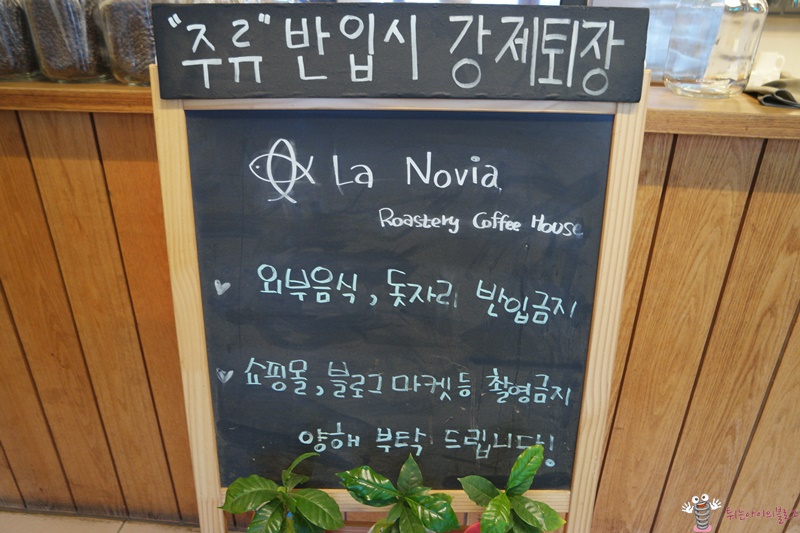 "주류" 반입시 강제퇴장
La Novia
Roastery Coffee House
외부음식, 돗자리 반입금지
쇼핑몰, 블로그마켓등 촬영금지
양해 부탁 드립니다!
튀는아이의블로그